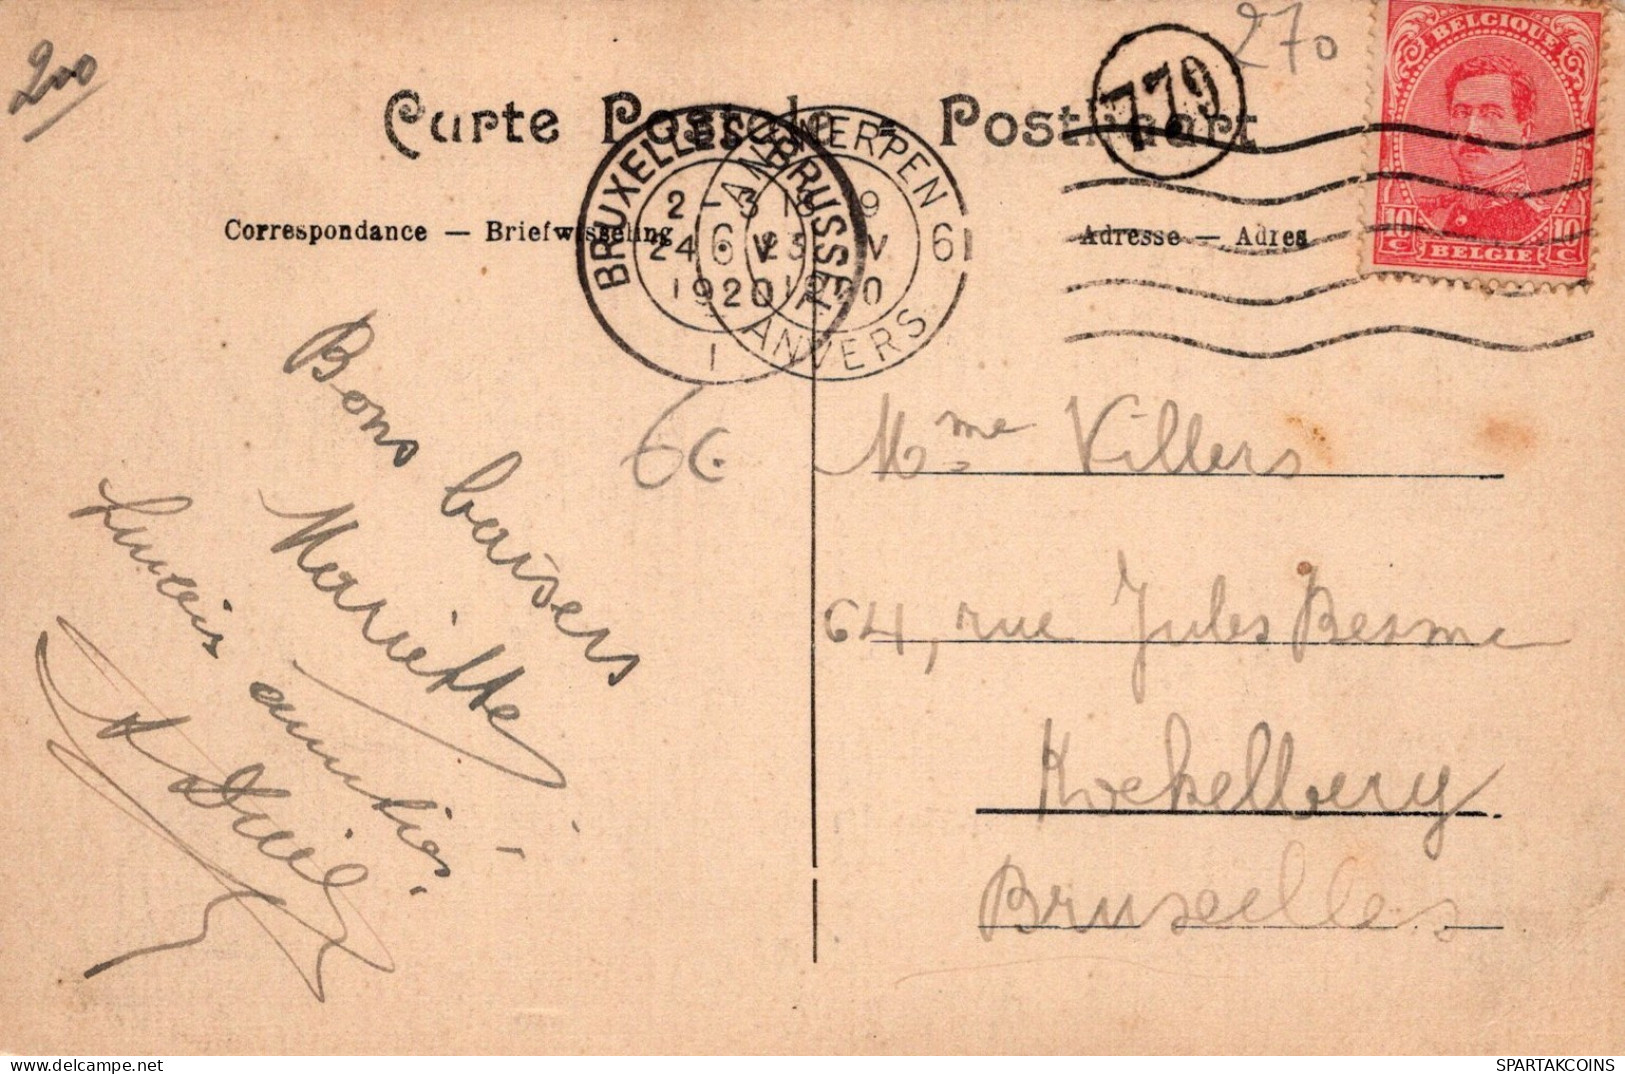 200
270
779
BELGIQUE
10 C
10 C
BELGIE
Carte Postale - Postkaart
BRUXELLES BRUSSEL
2 - 3
24 V
1920
1
ANTWERPEN 6
ANVERS
18 - 19
23 V
1920
Correspondance — Briefwisseling
Adresse — Adres
6C.
Bons baisers
Mariette
amitiés
Mme Villers
64, rue Jules Besme
Koekelberg
Bruxelles
SPARTAKCOINS
https://www.delcampe.net